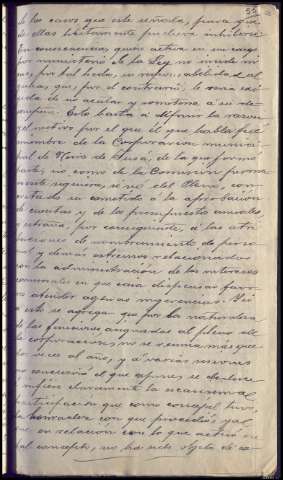 de los casos que este señala, para que
de ellas lícitamente pudiera inhibirse
En consecuencia, quien activa en su cargo
por ministerio de la Ley no incide nun-
ca, por tal hecho, en responsabilidad al-
guna, que, por el contrario, le sería exi-
gida de no acatar y someterse a su de-
sempeño. Esto basta a definir la razon
y el motivo por el que él que habla fue
miembro de la Corporación munici-
pal de de la que formó
parte, no como de la Comisión perma-
nente siquiera, si no del Pleno, con-
cretado su cometido á la aprobación
de cuentas y de los presupuestos anuales,
y extraña, por consiguiente, á las atri-
buciones de nombramiento de perso-
nal y demás extremos relacionados
con la administración de los intereses
comunales en que cabía dispensar favor
o atender ajenas ingerencias. Si
a esto se agrega que por la naturaleza
de las funciones asignadas al pleno de
la corporación, no se reunía más que
tres veces al año, y á varias sesiones
no concurrió el que expone, se
claramente la escasísima
participación que como concejal tuvo,
la con que procedió y al
que en relación con lo que actuó en
tal concepto, no ha sido objeto de